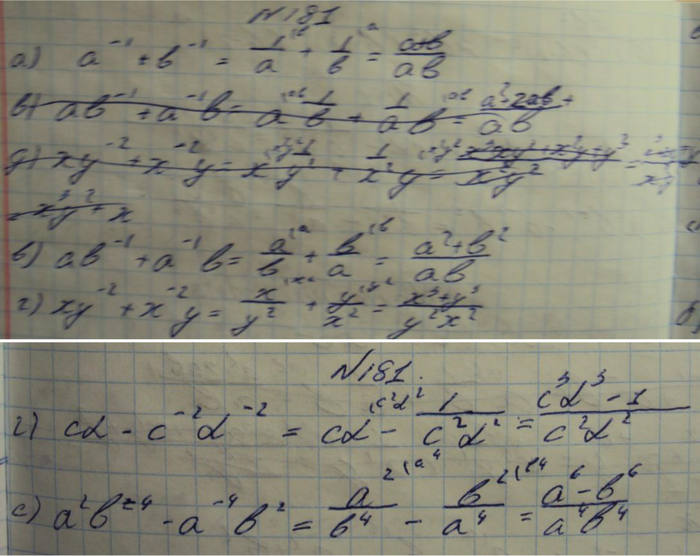 N181
а) a⁻¹ + b⁻¹ = 1/a + 1/b = a+b/ab
в) ab⁻¹ + a⁻¹b = a 1/b + 1/a b = a²+2ab+/ab
д) xy⁻² + x⁻²y = x 1/y² + 1/x² y =
в) ab⁻¹ + a⁻¹b = a/b + b/a = a²+b²/ab
г) xy⁻² + x⁻²y = x/y² + y/x² = x³+y³/y²x²
N181.
г) cd - c⁻²d⁻² = cd - 1/c²d² = c³d³-1/c²d²
с) a²b⁻⁴ - a⁻⁴b² = a²/b⁴ - b²/a⁴ = a⁶-b⁶/a⁴b⁴